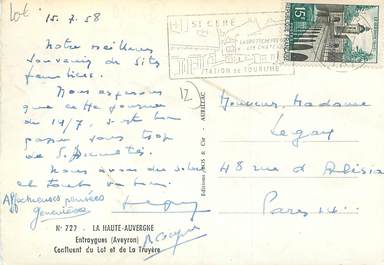 Lot
15.7.58
Notre meilleur
souvenir de sites
familiers.
Nous espérons
que cette journée
du 14/7 s'est bien
passée sans trop
de
Nous avons du
et tout va bien.
Affectueuses pensées
Geneviève
N° 727 - LA HAUTE-AUVERGNE
Entraygues (Aveyron)
Confluent du Lot et de La Truyère
Editions BOS & Cie - AURILLAC
ST CÉRÉ
STATION DE TOURISME
15F
12
Monsieur Madame
Legay
48 rue d'Alésia
Paris